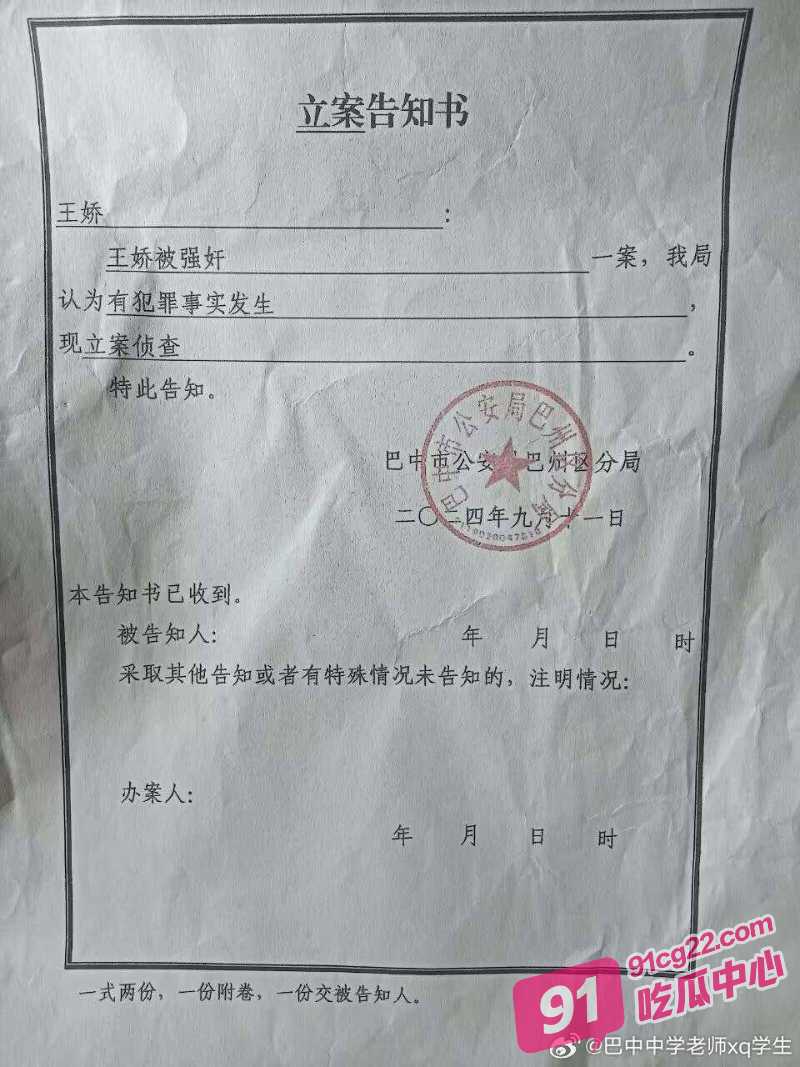 立案告知书
王娇：
王娇被强奸一案，我局
认为有犯罪事实发生，
现立案侦查。
特此告知。
巴中市公安局巴州区分局
巴中市公安局巴州区分局
二〇二四年九月十一日
本告知书已收到。
被告知人： 年 月 日 时
采取其他告知或者有特殊情况未告知的，注明情况：
办案人：
年 月 日 时
一式两份，一份附卷，一份交被告知人。
91
91cg22.com
吃瓜中心
@巴中中学老师xq学生